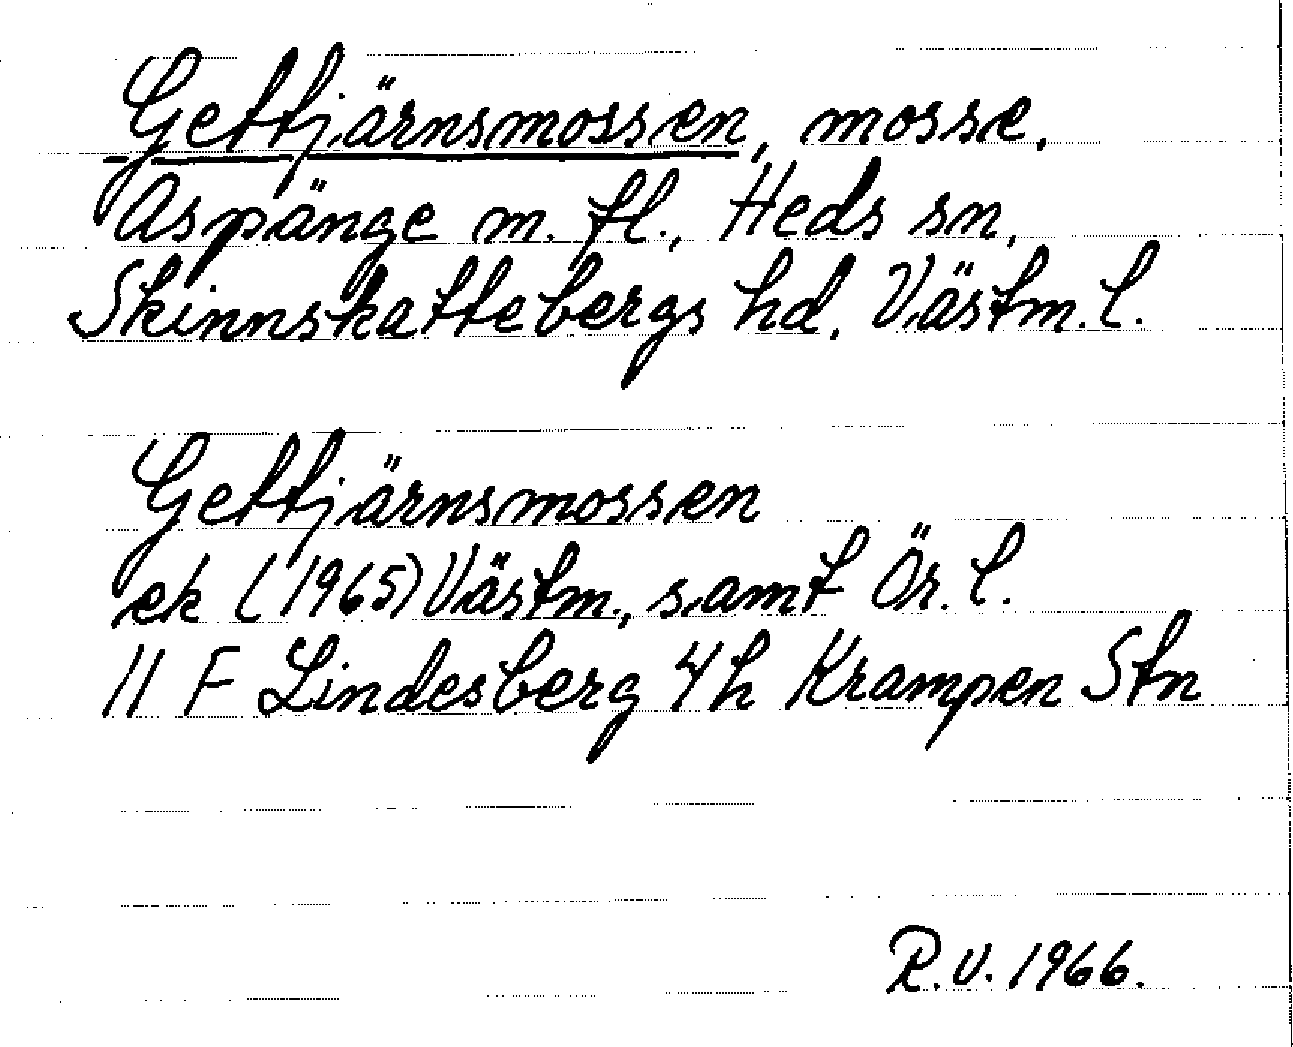 Gettjärnsmossen, mosse,
Aspänge m. fl., Heds sn,
Skinnskattebergs hd, Västm. l.
Gettjärnsmossen
ek (1965) Västm., samt Ör. l.
11 F Lindesberg 4h Krampen Stn
R.V. 1966.